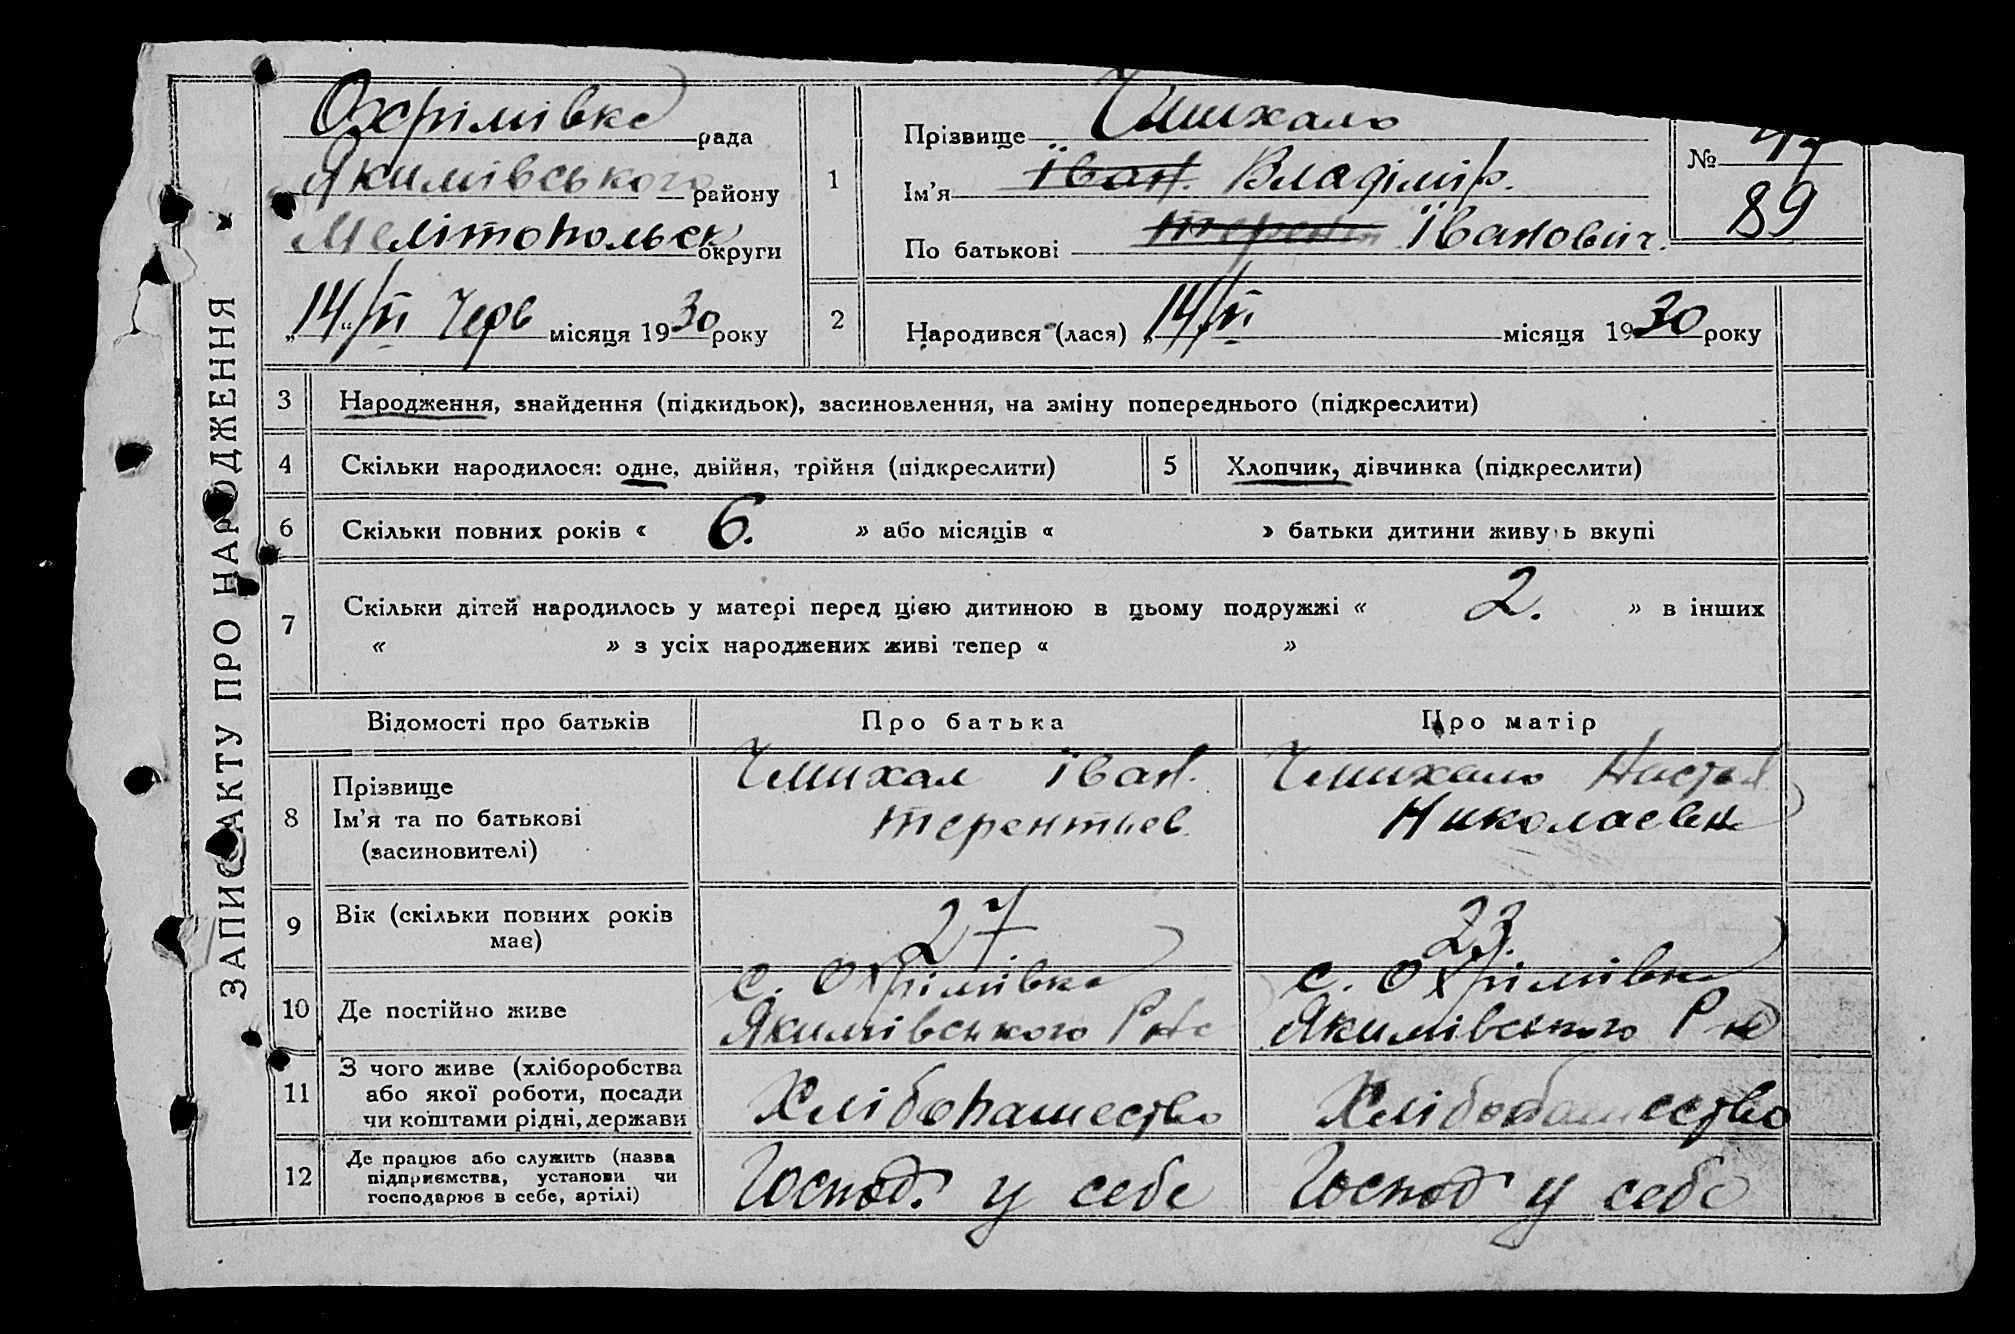 ЗАПИС АКТУ ПРО НАРОДЖЕННЯ
Охрімівка рада
Якимівського району
Мелітопольск округи
„14/VI Черв місяця 1930 року
1
Прізвище Чмихало
Ім’я Іван. Владімір.
По батькові Терентів Івановіч.
№ 47
89
2
Народився (лася) „14/VI місяця 1930 року
3 Народження, знайдення (підкидьок), засиновлення, на зміну попереднього (підкреслити)
4 Скільки народилося: одне, двійня, трійня (підкреслити)
5 Хлопчик, дівчинка (підкреслити)
6 Скільки повних років « 6. » або місяців « » батьки дитини живуть вкупі
7 Скільки дітей народилось у матері перед цією дитиною в цьому подружжі « 2. » в інших
« » з усіх народжених живі тепер « »
Відомості про батьків Про батька Про матір
8
Прізвище
Ім’я та по батькові
(засиновителі)
Чмихал Іван.
Терентьев
Чмихало Настья
Николаевн
9
Вік (скільки повних років
має)
27
23.
10 Де постійно живе
с. Охрімівка
Якимівського Р-на
с. Охрімівка
Якимівського Р-н
11
З чого живе (хліборобства
або якої роботи, посади
чи коштами рідні, держави
Хлібопашество
Хлібопашество
12
Де працює або служить (назва
підприємства, установи чи
господарює в себе, артілі)
Господ. у себе
Господ у себе